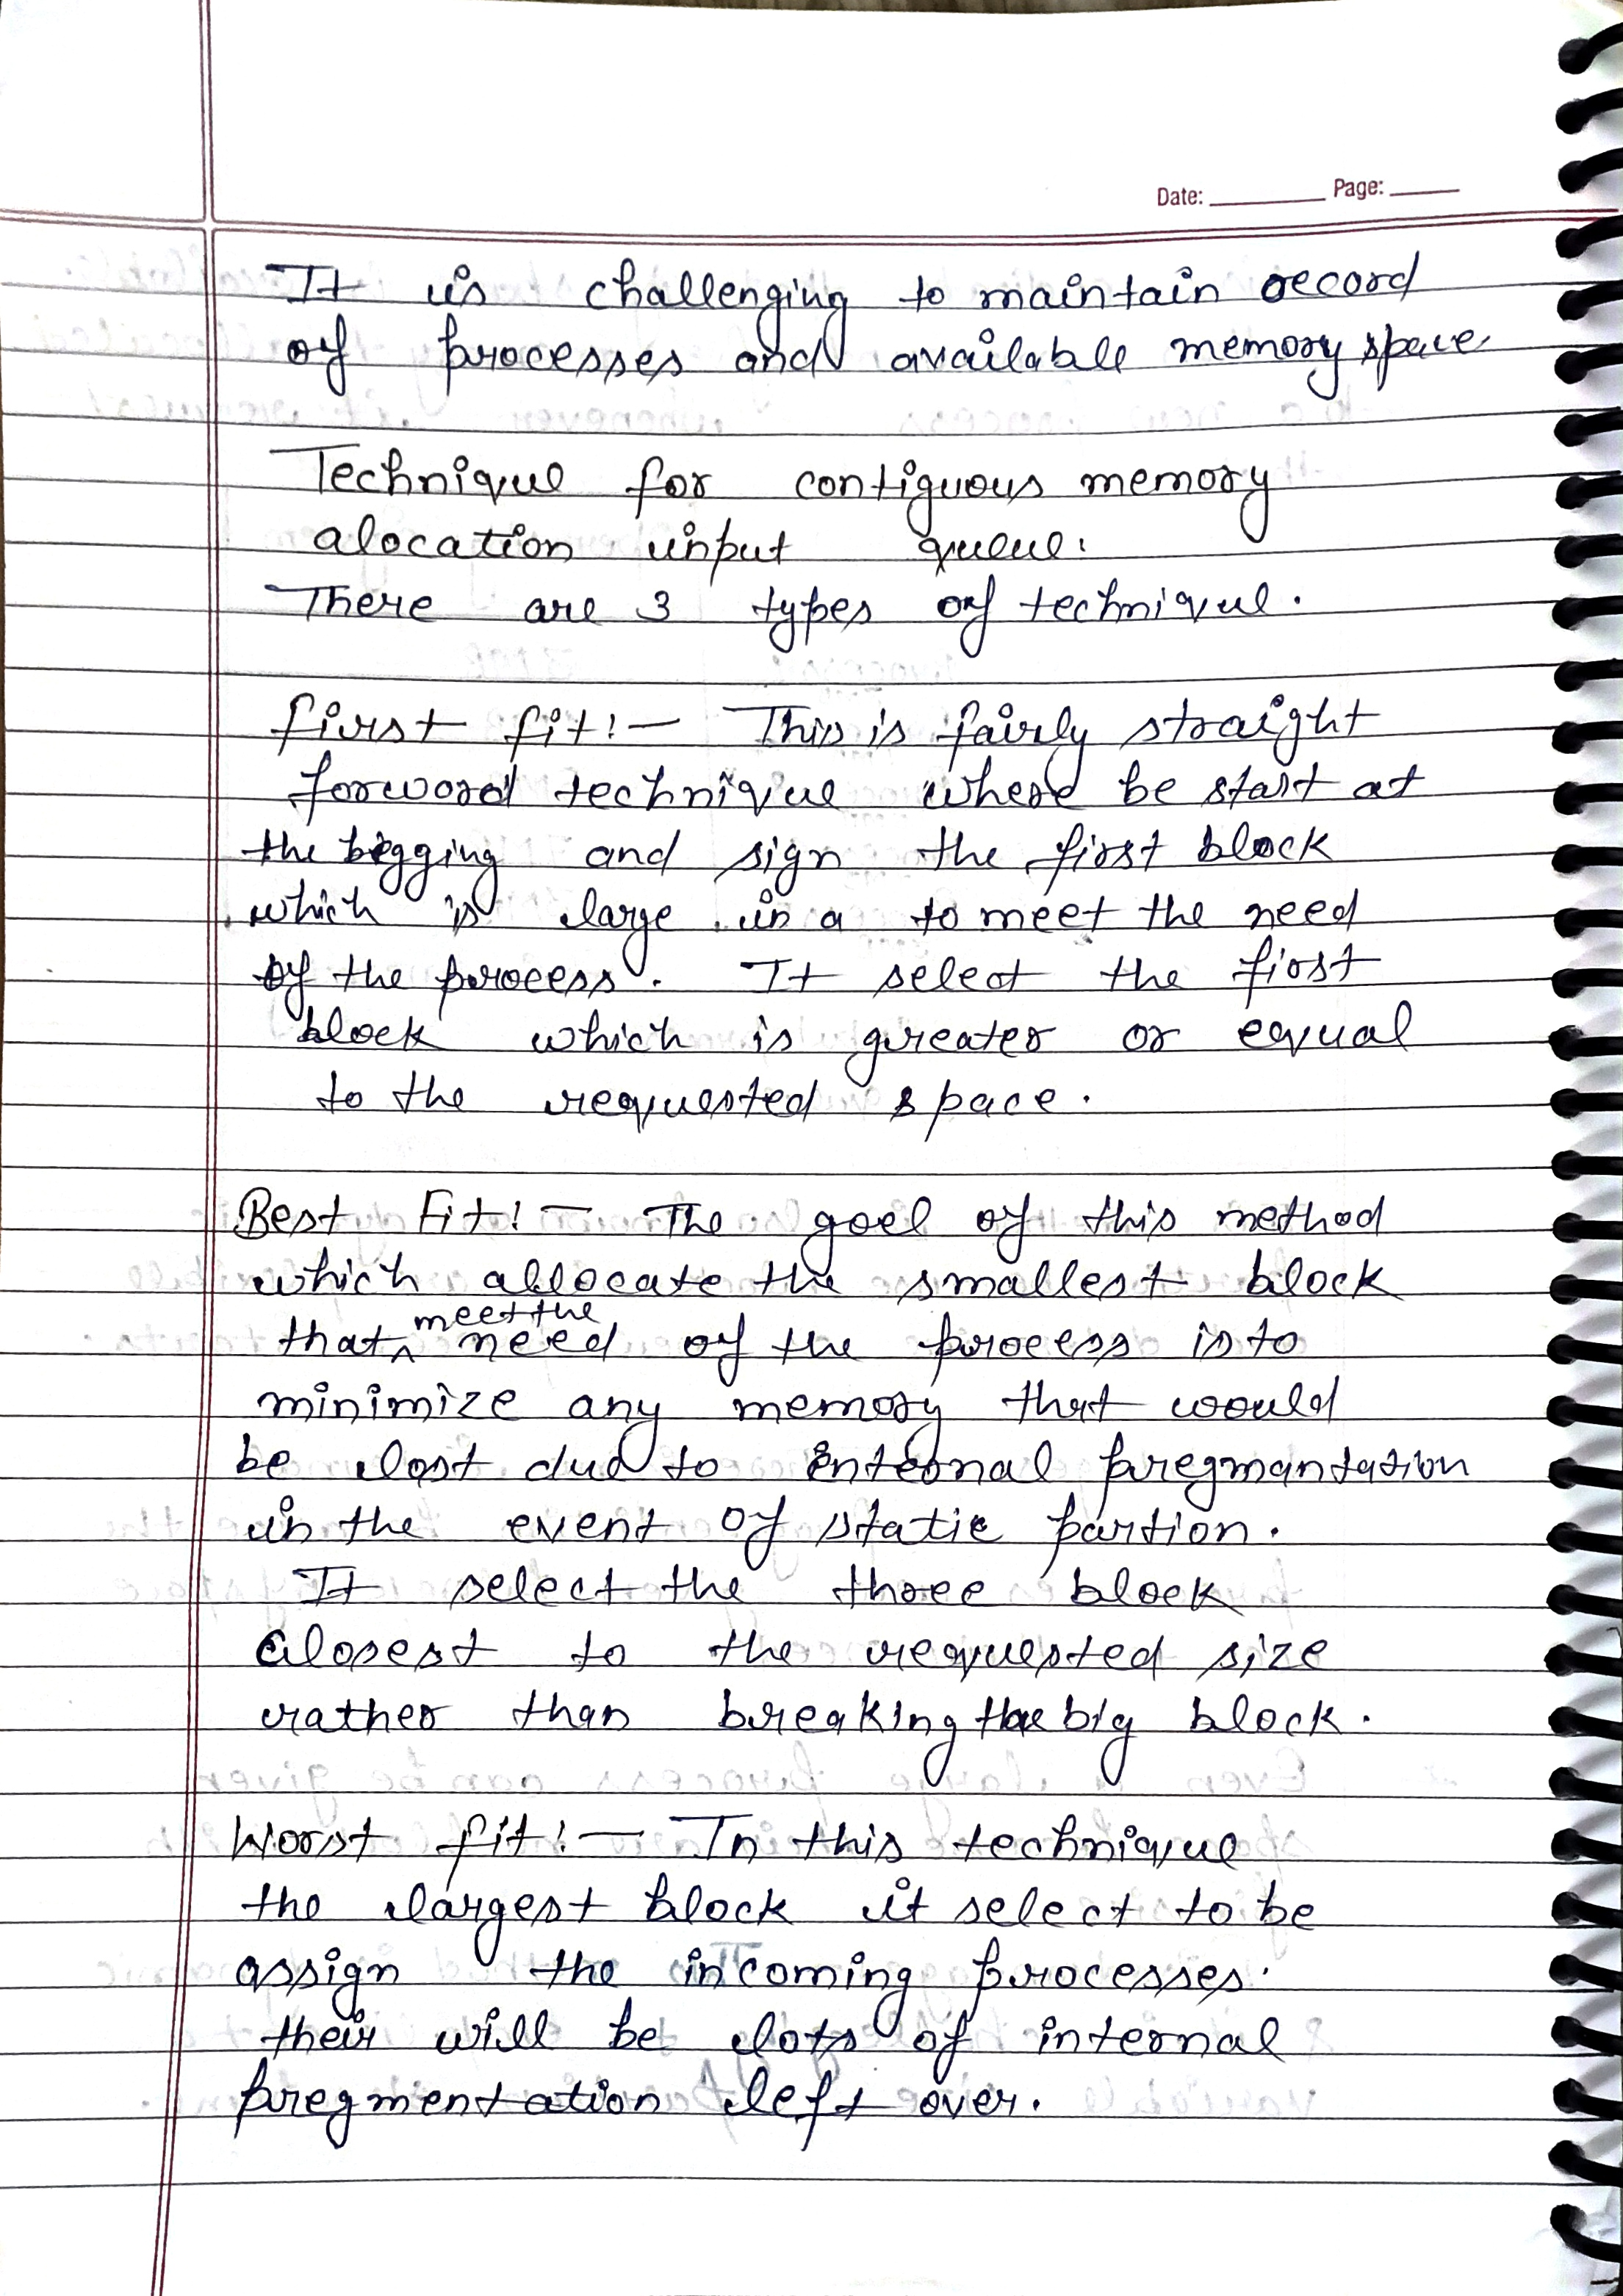 Date: Page:
It is challenging to maintain record
of processes and available memory space
Technique for contiguous memory
alocation input queue.
There are 3 types of technique.
first fit:- This is fairly straight
forword technique where be start at
the bigging and sign the first block
which is large in a to meet the need
of the process. It select the first
block which is greater or equal
to the requested space.
Best Fit:- The goel of this method
which allocate the smallest block
that ^ meet the need of the process is to
minimize any memory that would
be lost due to internal fregmantation
in the event of static partion.
It select the three block
closest to the requested size
rather than breaking the big block.
Worst fit:- In this technique
the largest block it select to be
assign the incoming processes.
their will be lots of internal
fregmentation left over.